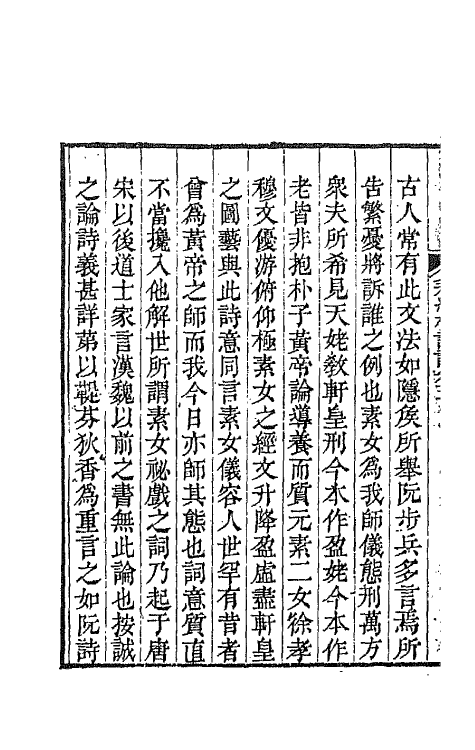 古人常有此文法如隱矦所舉阮步兵多言焉所
告繁憂將訴誰之例也素女爲我師儀態刑萬方
衆夫所希見天姥敎軒皇刑今本作盈姥今本作
老皆非抱朴子黃帝論導養而質元素二女徐孝
穆文優游俯仰極素女之經文升降盈虛盡軒皇
之圖藝與此詩意同言素女儀容人世罕有昔者
曾爲黃帝之師而我今日亦師其態也詞意質直
不當攙入他解世所謂素女祕戲之詞乃起于唐
宋以後道士家言漢魏以前之書無此論也按誠
之論詩義甚詳苐以鞮芬狄香爲重言之如阮詩